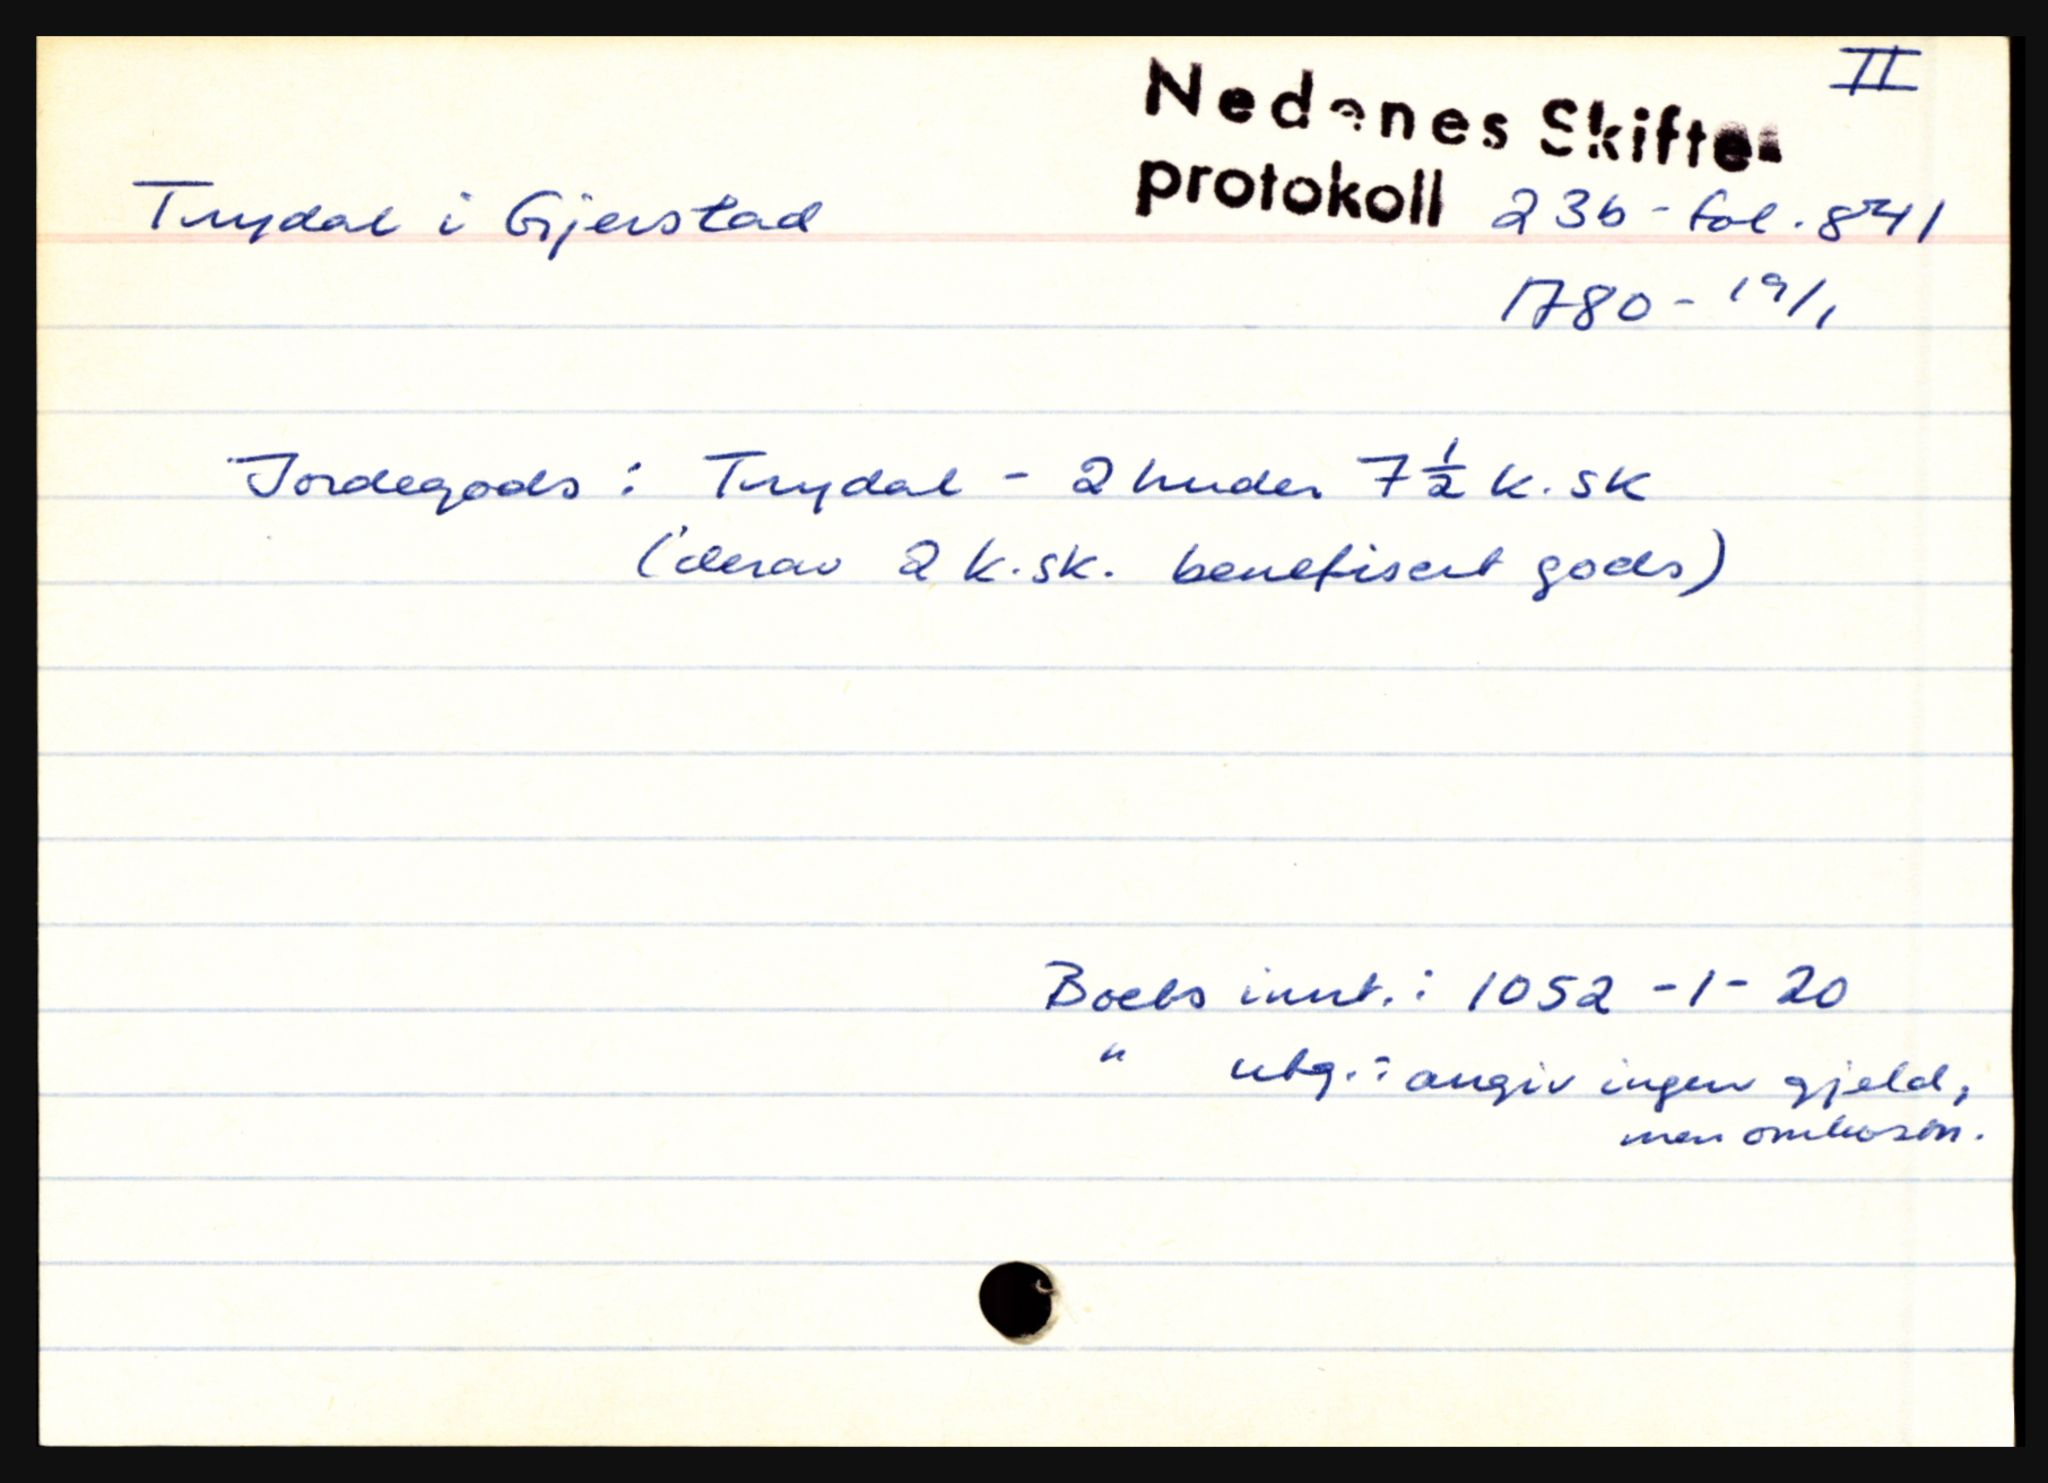 II
Nedenes Skifte-
protokoll 23b - fol. 841
Trydal i Gjerstad
1780 - 19/1
Jordegods : Trydal - 2 huder 7 1/2 k. sk
(derav 2 k. sk. benefisert gods)
Boets innt. : 1052 - 1 - 20
" utg. : angiv ingen gjeld,
men omkostn.